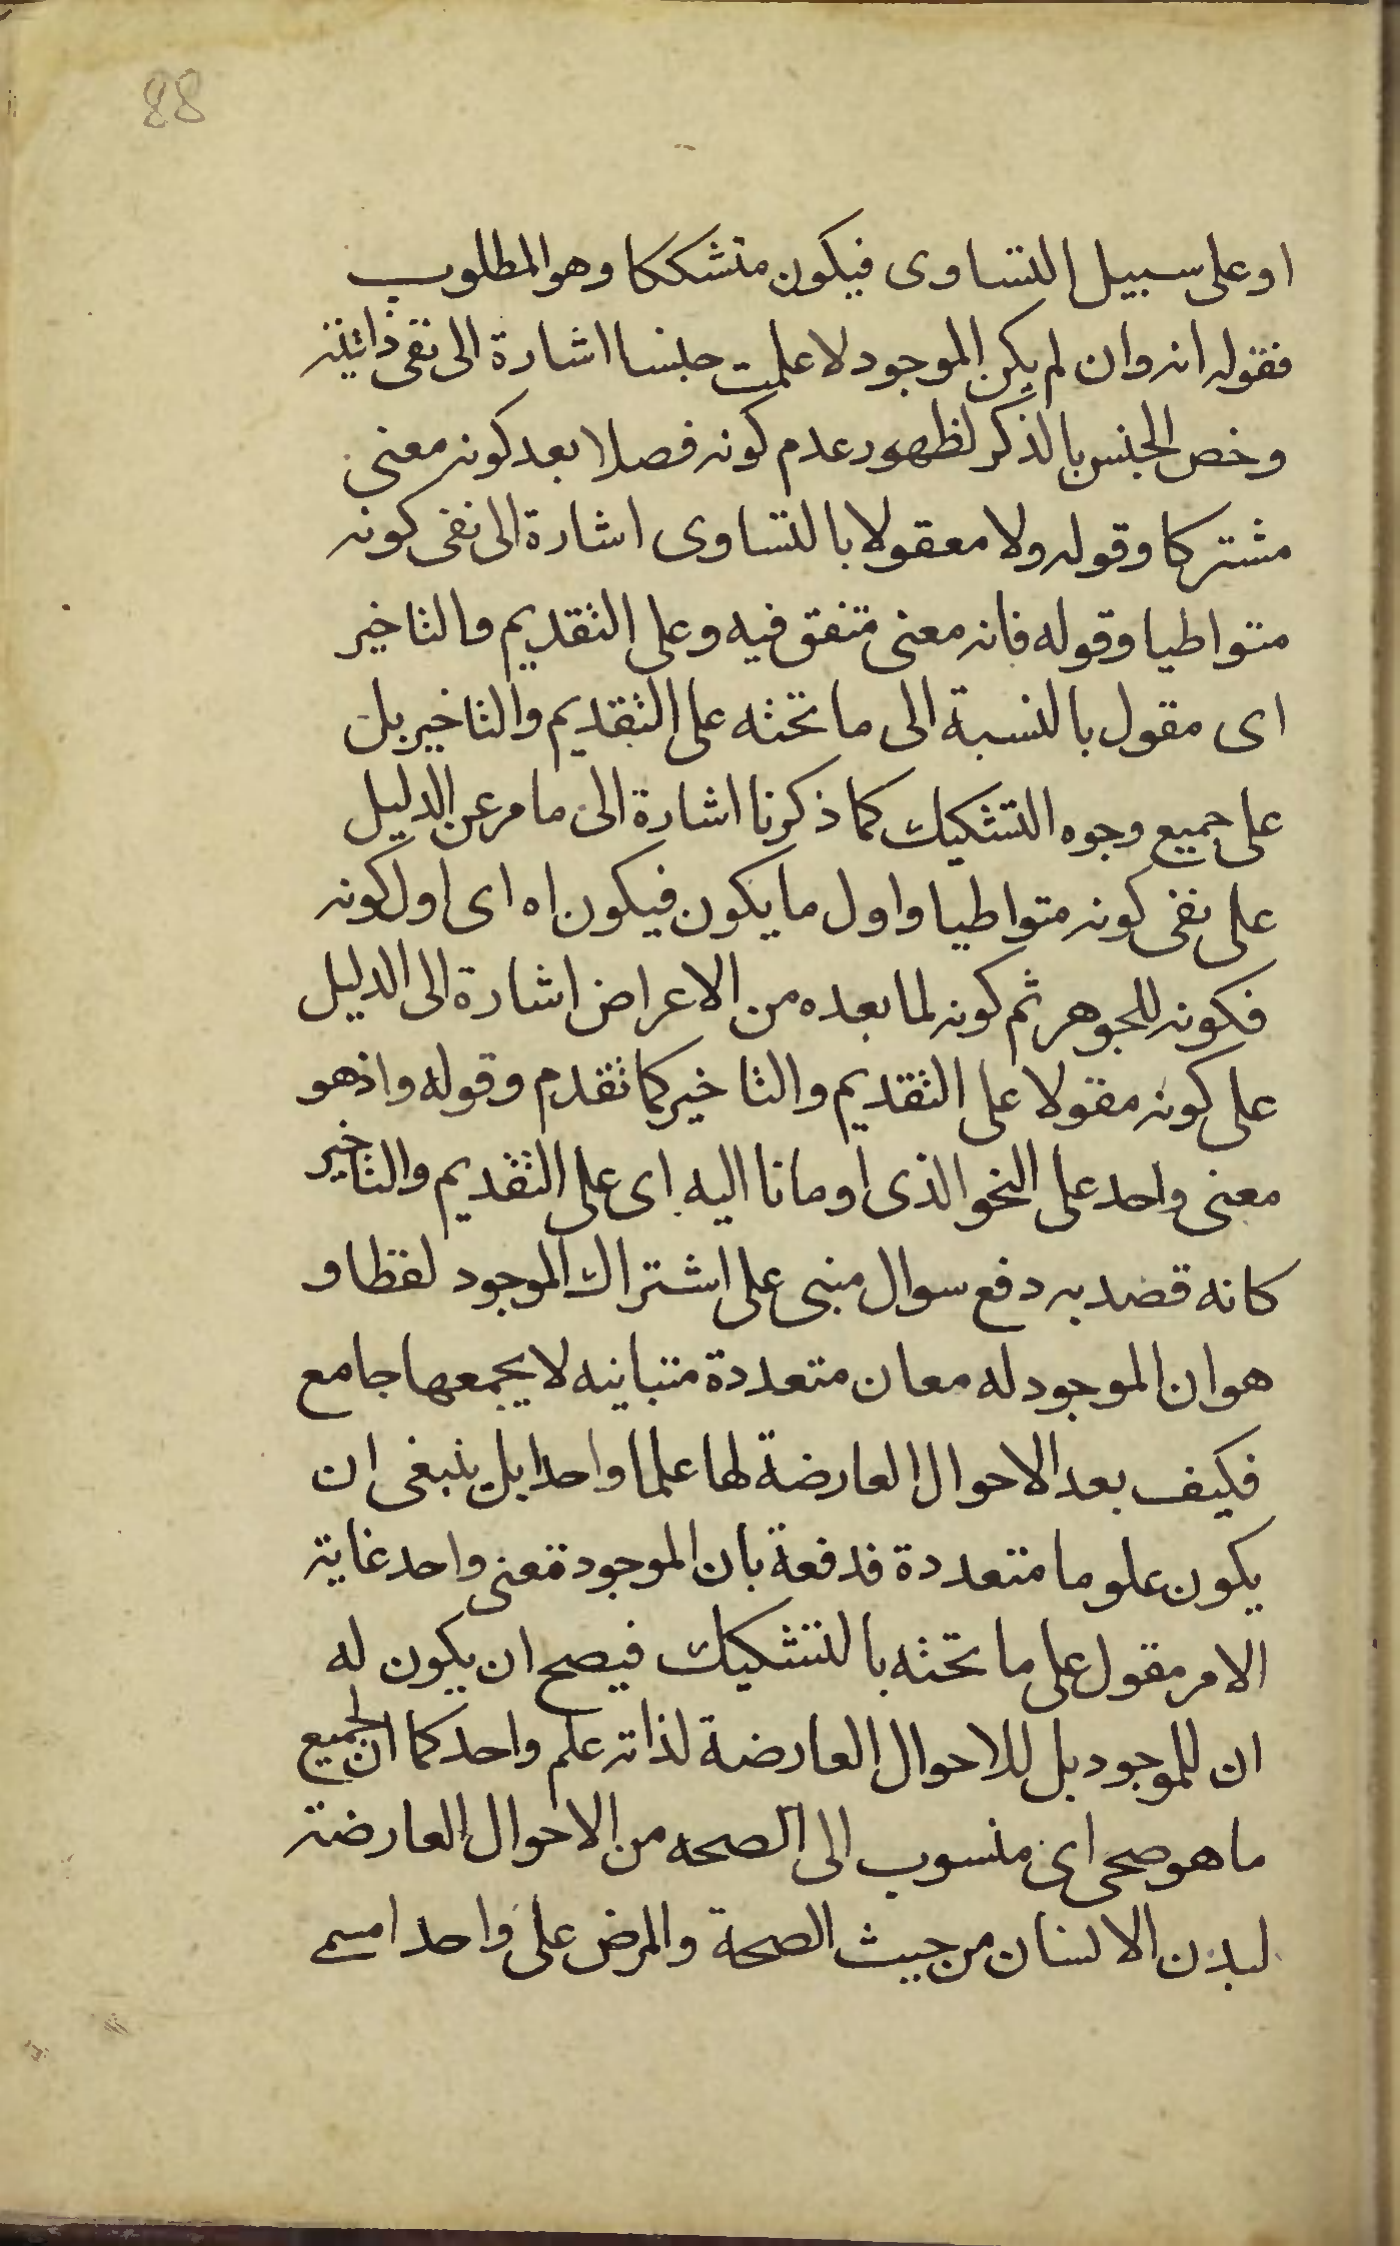 88
او على سبيل التساوى فيكون متشككا وهو المطلوب
فقوله انه وان لم يكن الموجود لا علمت جنسا اشارة الى نفى ذاتيته
وخص الجنس بالذكر لظهور عدم كونه فصلا بعد كونه معنى
مشتركا وقوله ولا معقولا بالتساوى اشارة الى نفى كونه
متواطيا وقوله فانه معنى متفق فيه وعلى التقديم والتاخير
اى مقول بالنسبة الى ما تحته على التقديم والتاخير بل
على جميع وجوه التشكيك كما ذكرنا اشارة الى ما مر عن الدليل
على نفى كونه متواطيا واول ما يكون فيكون اه اى اول كونه
فكونه للجوهر ثم كونه لما بعده من الاعراض اشارة الى الدليل
على كونه مقولا على التقديم والتاخير كما تقدم وقوله واذ هو
معنى واحد على النحو الذى اومانا اليه اى على التقديم والتاخير
كانه قصد به دفع سوال مبنى على اشتراك الموجود لفظا و
هو ان الموجود له معان متعددة متباينه لا يجمعها جامع
فكيف بعد الاحوال العارضة لها علما واحدا بل ينبغى ان
يكون علوما متعددة فدفعة بان الموجود معنى واحد غاية
الامر مقول على ما تحته بالتشكيك فيصح ان يكون له
ان للموجود بل للاحوال العارضة لذاته علم واحد كما ان لجميع
ما هو صحى اى منسوب الى الصحه من الاحوال العارضة
لبدن الانسان من حيث الصحة والمرض على واحد امسمى